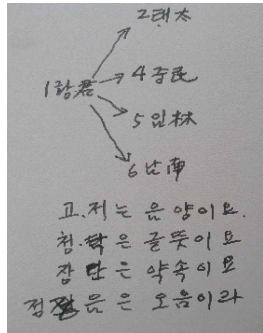 2태太
1랑君
4중民
5임林
6남南
고.저는 음양이요.
청.탁은 글뜻이요
장단은 약속이요
점 음은 오음이라